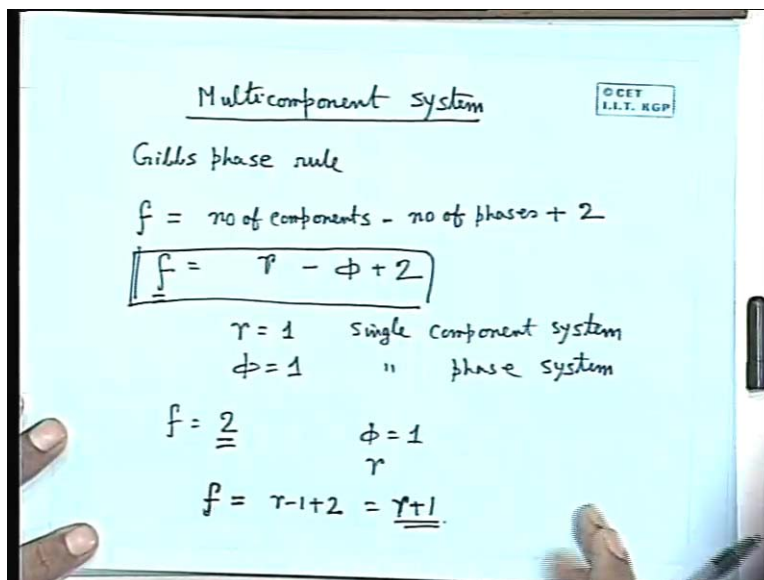 Multicomponent system
© CET
I.I.T. KGP
Gibbs phase rule
f = no of components - no of phases + 2
f = r - ф + 2
r = 1 single component system
ф = 1 " phase system
f = 2 ф = 1
r
f = r-1+2 = r+1.